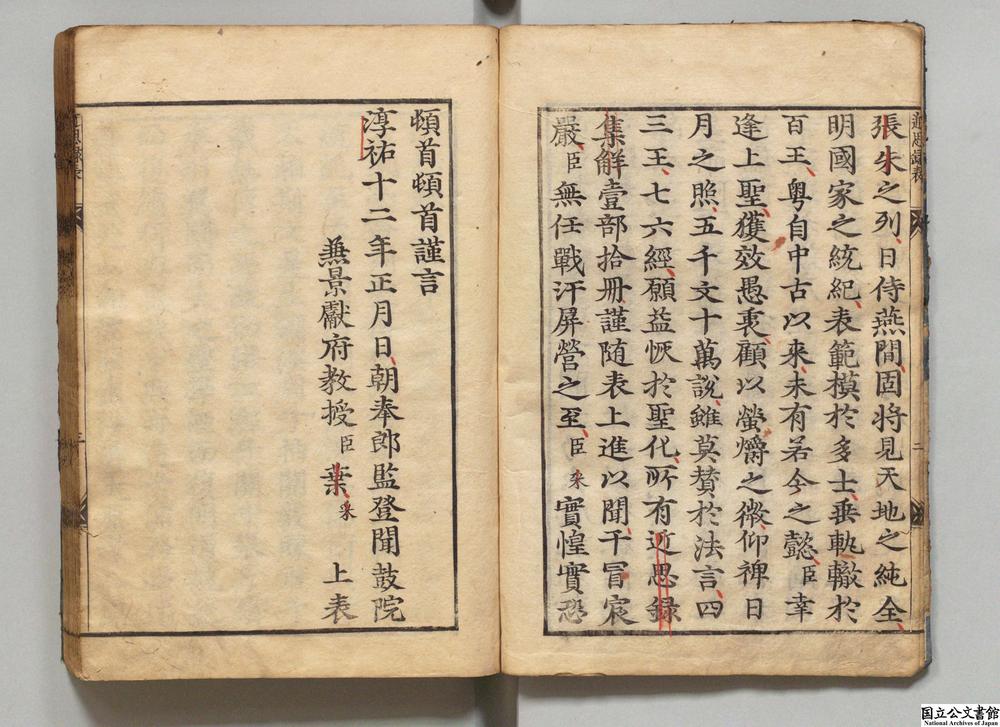 張朱之列日侍燕閒固將見天地之純全
明國家之統紀表範模於多士垂軌轍於
百王粵自中古以來未有若今之懿臣幸
逢上聖獲效愚衷顧以螢爝之微仰裨日
月之照五千文十萬說雖莫贊於法言四
三王七六經願益恢於聖化所有近思録
集解壹部拾冊謹随表上進以聞干冒宸
嚴臣無任戰汗屏營之至臣采實惶實恐
頓首頓首謹言
淳祐十二年正月日朝奉郎監登聞鼓院
兼景獻府教授臣葉采上表
近思録表
二
三
国立公文書館
National Archives of Japan